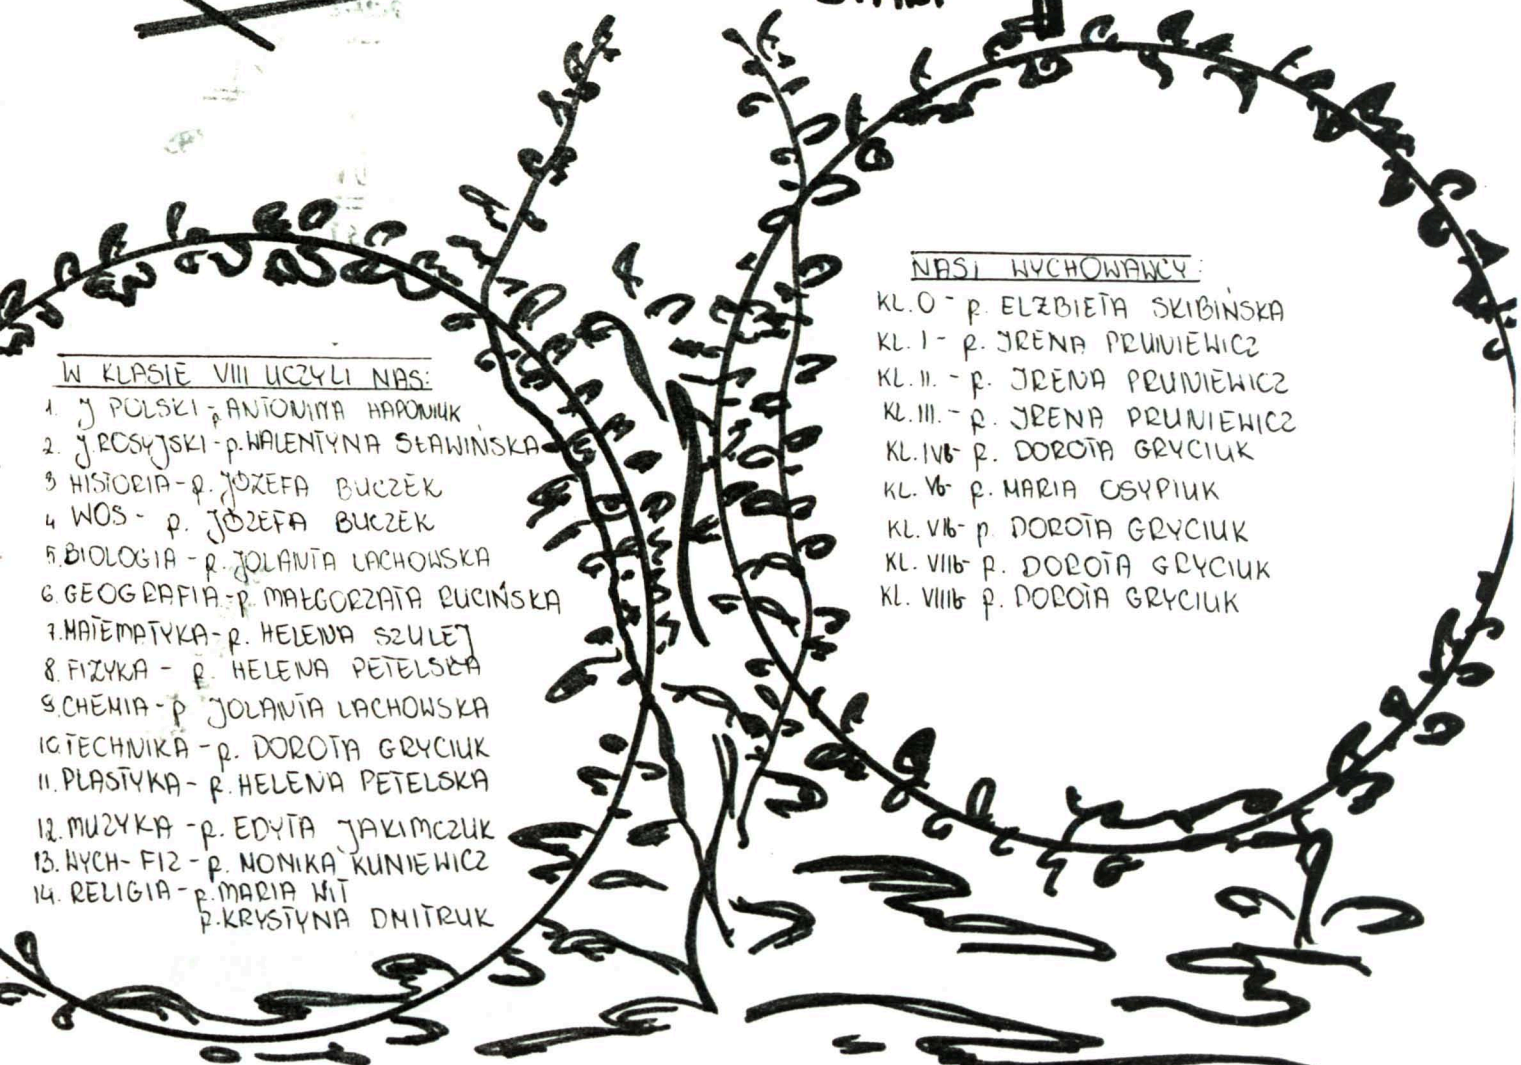 W KLASIE VIII UCZYLI NAS:
1. J POLSKI - p ANTONINA HAPONIUK
2. J. ROSYJSKI - p. WALENTYNA SŁAWIŃSKA
3 HISTORIA - p. JÓZEFA BUCZEK
4 WOS - p. JÓZEFA BUCZEK
5. BIOLOGIA - p. JOLANTA LACHOWSKA
6. GEOGRAFIA - p. MAŁGORZATA RUCIŃSKA
7. MATEMATYKA - p. HELENA SZULEJ
8. FIZYKA - p. HELENA PETELSKA
9. CHEMIA - p JOLANTA LACHOWSKA
10. TECHNIKA - p. DOROTA GRYCIUK
11. PLASTYKA - p. HELENA PETELSKA
12. MUZYKA - p. EDYTA JAKIMCZUK
13. WYCH - FIZ - p. MONIKA KUNIEWICZ
14. RELIGIA - p. MARIA WIT
p. KRYSTYNA DMITRUK
NASI WYCHOWAWCY:
KL. O - p. ELŻBIETA SKIBIŃSKA
KL. I - p. IRENA PRUNIEWICZ
KL. II. - p. IRENA PRUNIEWICZ
KL. III. - p. IRENA PRUNIEWICZ
KL. IVb - p. DOROTA GRYCIUK
KL. Vb - p. MARIA OSYPIUK
KL. VIb - p. DOROTA GRYCIUK
KL. VIIb - p. DOROTA GRYCIUK
KL. VIIIb p. DOROTA GRYCIUK